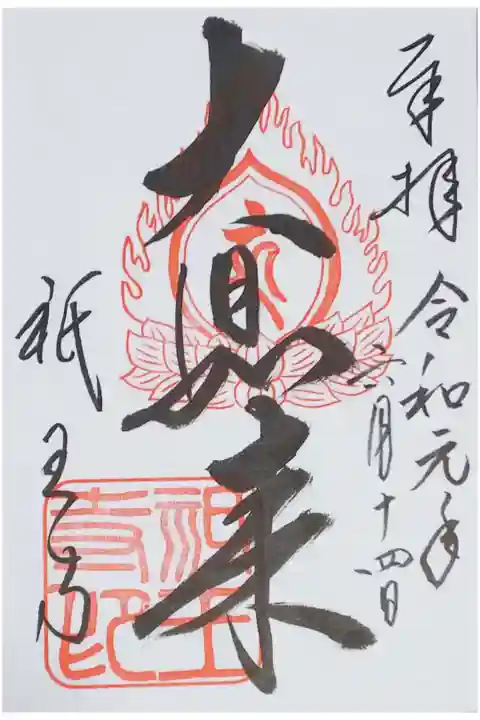 奉拝
令和元年
六月十四日
大日如来
祇王寺
祇王
寺印